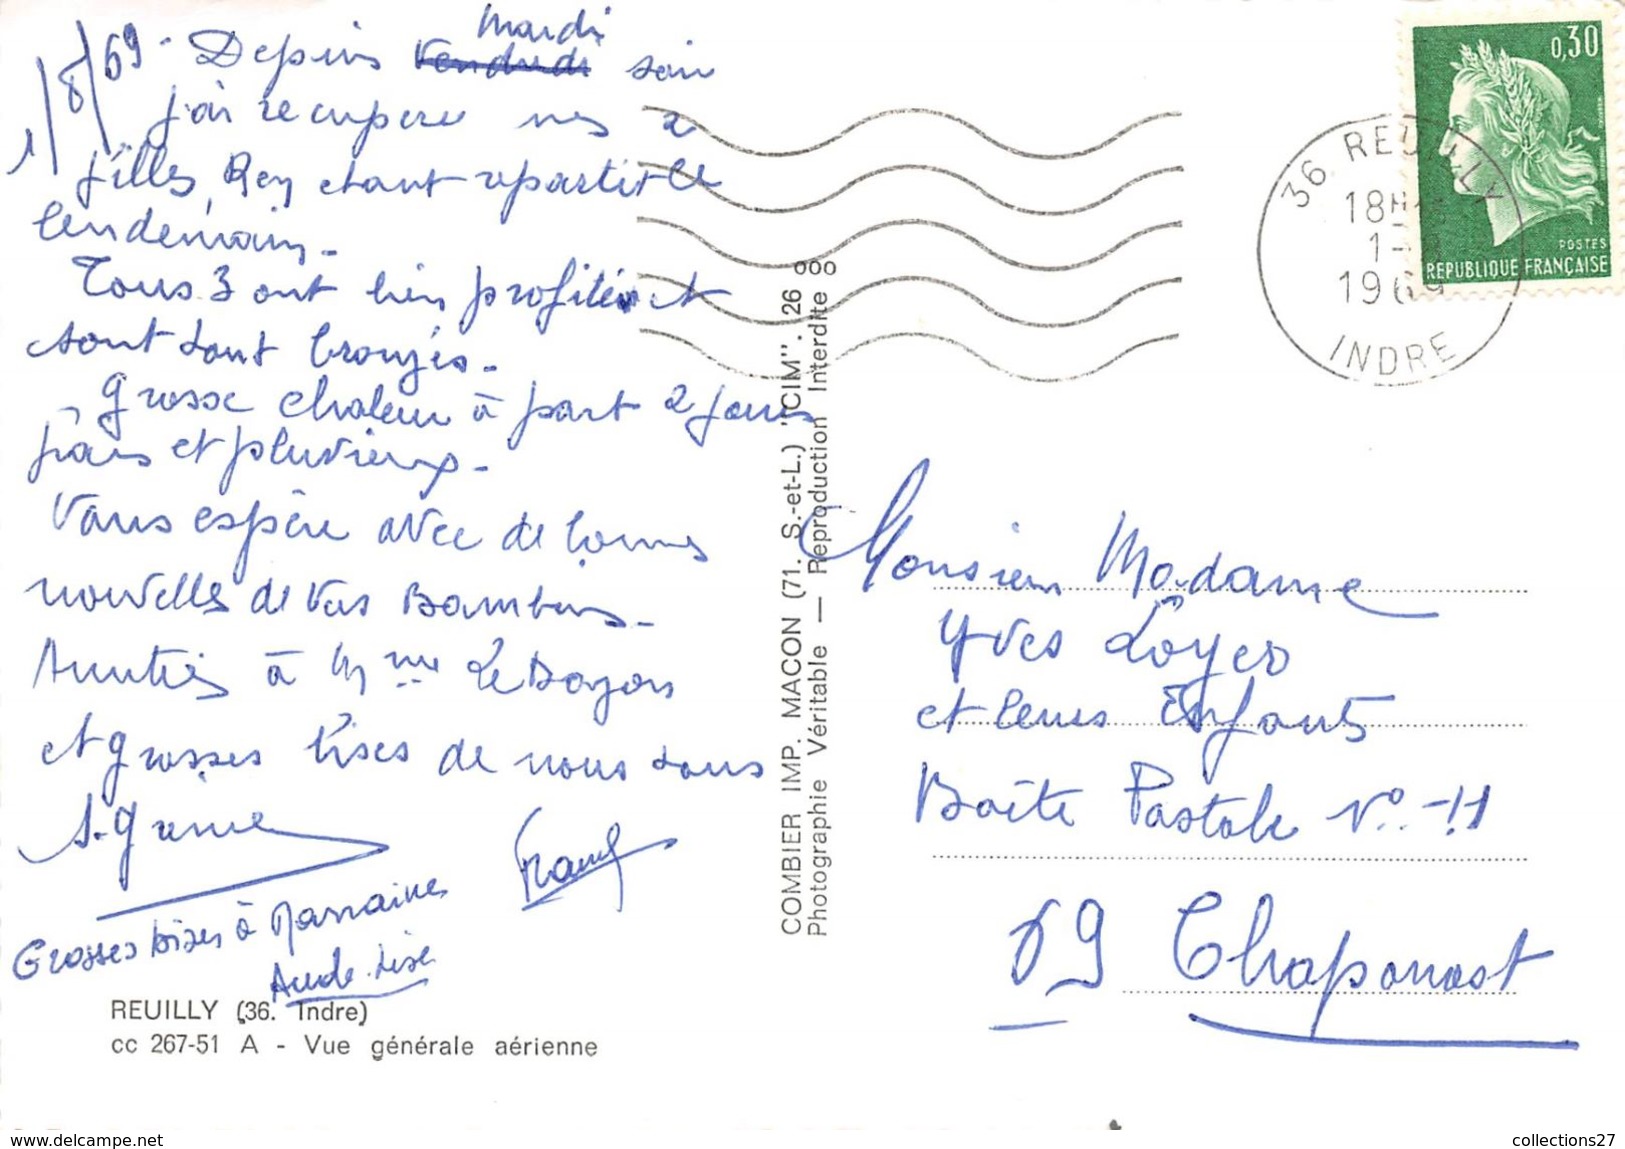 1/8/69 - Depuis Mardi soir
j'ai recupere mes 2
filles, Rey etant repartit le
lendemain -
Tous 3 ont bien profités et
sont tout bronzés -
Grosse chaleur à part 2 jours
frais et pluvieux -
Vous espère avec de bonnes
nouvelles de vos Bambins -
Amitiés à Mme Le
et grosses bises de nous tous
Grosses bises à Marraine
Aude-Lise
REUILLY (36. Indre)
cc 267-51 A - Vue générale aérienne
COMBIER IMP. MACON (71. S.-et-L.) "CIM". 26 000
Photographie Véritable — Reproduction Interdite
0,30
POSTES
REPUBLIQUE FRANÇAISE
36 REUILLY
18H
1-
1969
INDRE
Monsieur Madame
Yves Loyer
et leurs Enfants
Boîte Postale N° -11
69 Chaponost
www.delcampe.net
collections27